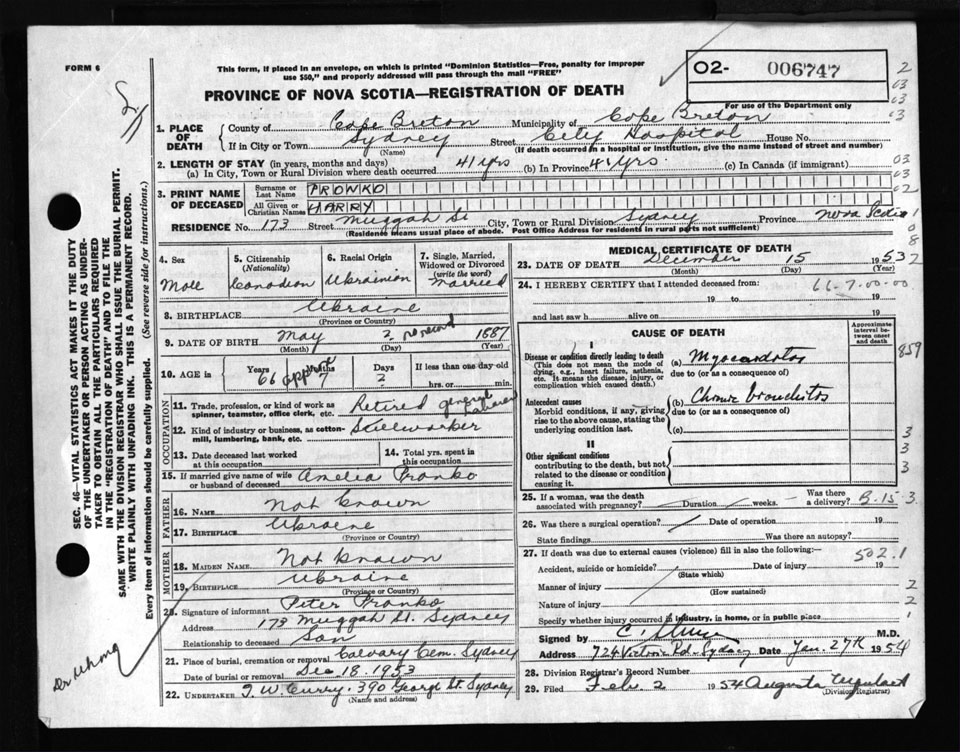 FORM 6
This form, if placed in an envelope, on which is printed "Dominion Statistics—Free, penalty for improper
use $50," and properly addressed will pass through the mail "FREE"
PROVINCE OF NOVA SCOTIA—REGISTRATION OF DEATH
02- 006747
For use of the Department only
SEC. 46—VITAL STATISTICS ACT MAKES IT THE DUTY
OF THE UNDERTAKER OR PERSON ACTING AS UNDER-
TAKER TO OBTAIN ALL THE PARTICULARS REQUIRED
IN THE "REGISTRATION OF DEATH" AND TO FILE THE
SAME WITH THE DIVISION REGISTRAR WHO SHALL ISSUE THE BURIAL PERMIT.
WRITE PLAINLY WITH UNFADING INK. THIS IS A PERMANENT RECORD.
Every item of information should be carefully supplied. (See reverse side for instructions.)
1. PLACE OF DEATH
County of Cape Breton Municipality of Cape Breton
If in City or Town Sydney Street City Hospital House No.
(Name) (If death occurred in a hospital or institution, give the name instead of street and number)
2. LENGTH OF STAY (in years, months and days)
(a) In City, Town or Rural Division where death occurred 41 yrs (b) In Province 41 yrs. (c) In Canada (if immigrant)
3. PRINT NAME OF DECEASED
Surname or Last Name PRONKO
All Given or Christian Names HARRY
RESIDENCE No. 173 Street Muggah St City, Town or Rural Division Sydney Province Nova Scotia
(Residence means usual place of abode. Post Office Address for residents in rural parts not sufficient)
4. Sex Male
5. Citizenship (Nationality) Canadian
6. Racial Origin Ukrainian
7. Single, Married, Widowed or Divorced (write the word) Married
8. BIRTHPLACE Ukraine
(Province or Country)
9. DATE OF BIRTH May 2 no record 1887
(Month) (Day) (Year)
10. AGE in Years 66 approx Months 7 Days 2 If less than one day old
hrs. or min.
OCCUPATION
11. Trade, profession, or kind of work as spinner, teamster, office clerk, etc. Retired general laborer
12. Kind of industry or business, as cotton-mill, lumbering, bank, etc. Steelworker
13. Date deceased last worked at this occupation
14. Total yrs. spent in this occupation
15. If married give name of wife or husband of deceased Amelia Pronko
FATHER
16. NAME Not known
17. BIRTHPLACE Ukraine
(Province or Country)
MOTHER
18. MAIDEN NAME Not known
19. BIRTHPLACE Ukraine
(Province or Country)
20. Signature of informant Peter Pronko
Address 173 Muggah St. Sydney
Relationship to deceased Son
21. Place of burial, cremation or removal Calvary Cem. Sydney
Date of burial or removal Dec 18. 1953
22. UNDERTAKER T. W. Curry. 390 George St. Sydney
(Name and address)
MEDICAL CERTIFICATE OF DEATH
23. DATE OF DEATH December 15 1953
(Month) (Day) (Year)
24. I HEREBY CERTIFY that I attended deceased from: 66-7-00-00
19 to 19
and last saw h alive on 19
CAUSE OF DEATH
Approximate interval between onset and death
I
Disease or condition directly leading to death
(This does not mean the mode of dying, e.g., heart failure, asthenia, etc. It means the disease, injury, or complication which caused death.)
(a) Myocarditis
due to (or as a consequence of)
Antecedent causes
Morbid conditions, if any, giving rise to the above cause, stating the underlying condition last.
(b) Chronic bronchitis
due to (or as a consequence of)
(c)
II
Other significant conditions
contributing to the death, but not related to the disease or condition causing it.
25. If a woman, was the death associated with pregnancy? Duration weeks. Was there a delivery? B-15-3
26. Was there a surgical operation? Date of operation 19
State findings Was there an autopsy?
27. If death was due to external causes (violence) fill in also the following:— 502.1
Accident, suicide or homicide? Date of injury 19
(State which)
Manner of injury
(How sustained)
Nature of injury
Specify whether injury occurred in industry, in home, or in public place
Signed by M.D.
Address 724 Victoria Rd. Sydney Date Jan. 27th 1954
28. Division Registrar's Record Number
29. Filed Feb. 2 1954 Augusta
(Division Registrar)